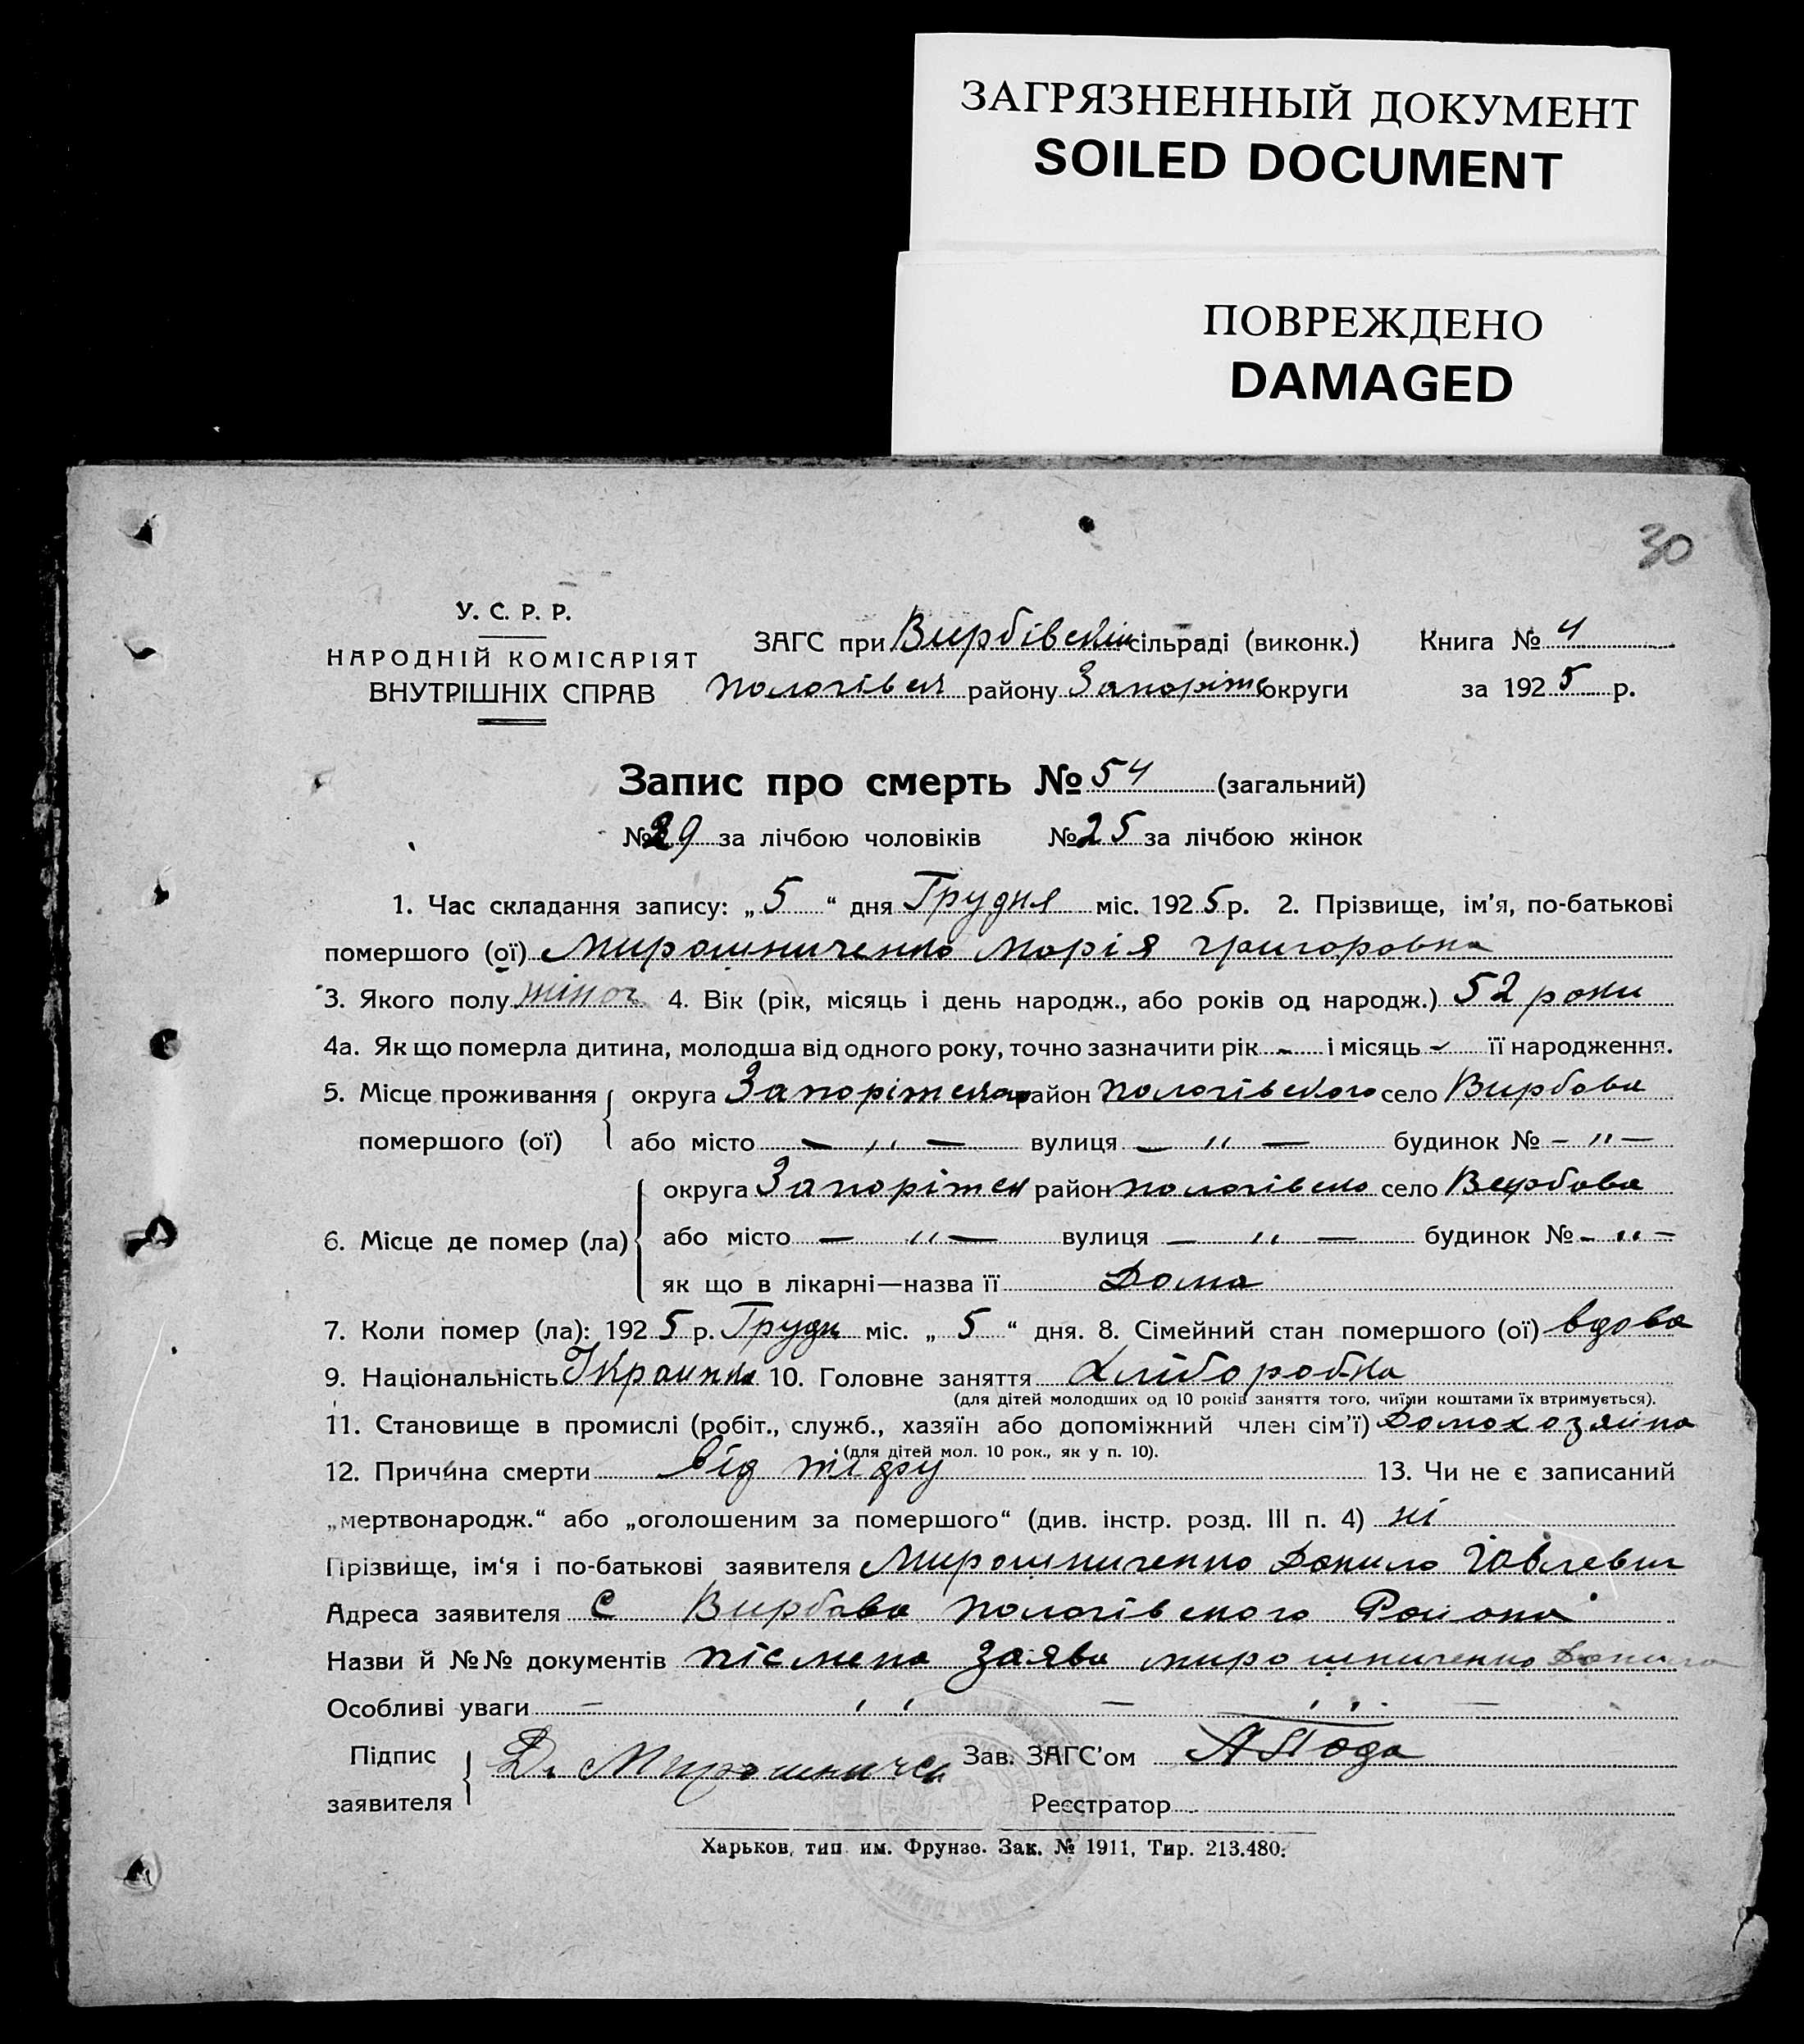 ЗАГРЯЗНЕННЫЙ ДОКУМЕНТ
SOILED DOCUMENT
ПОВРЕЖДЕНО
DAMAGED
30
У. С. Р. Р.
НАРОДНІЙ КОМІСАРІЯТ
ВНУТРІШНІХ СПРАВ
ЗАГС при Вирбівскім сільраді (виконк.) Книга № 4
Пологівск району Запоріж округи за 1925 р.
Запис про смерть № 54 (загальний)
№ 29 за лічбою чоловіків № 25 за лічбою жінок
1. Час складання запису: „5“ дня Грудня міс. 1925 р. 2. Прізвище, ім'я, по-батькові
помершого (ої) Мирошниченко Морія Григоровна
3. Якого полу жіноч 4. Вік (рік, місяць і день народж., або років од народж.) 52 роки
4а. Як що померла дитина, молодша від одного року, точно зазначити рік - і місяць - її народження.
5. Місце проживання помершого (ої) округа Запоріжского район Пологівского село Вирбова
або місто — „ — вулиця — „ — будинок № - „ —
6. Місце де помер (ла) округа Запоріжск район Пологівско село Вербова
або місто — „ — вулиця — „ — будинок № - „ -
як що в лікарні—назва її Дома
7. Коли помер (ла): 1925 р. Грудн міс. „5“ дня. 8. Сімейний стан помершого (ої) вдова
9. Національність Украинка 10. Головне заняття Хлібороб-ка
(для дітей молодших од 10 років заняття того, чиїми коштами їх втримується).
11. Становище в промислі (робіт., служб., хазяїн або допоміжний член сім'ї) Домохозяйна
(для дітей мол. 10 рок., як у п. 10).
12. Причина смерти від тіфу 13. Чи не є записаний
„мертвонародж.“ або „оголошеним за помершого“ (див. інстр. розд. III п. 4) ні
Прізвище, ім'я і по-батькові заявителя Мирошниченко Данило
Адреса заявителя С Вирбова Пологівского Района
Назви й №№ документів пісмена заява мирошниченко Данила
Особливі уваги — „ — „ —
Підпис заявителя Д. Мирошничен Зав. ЗАГС'ом
Реєстратор
Харьков, тип. им. Фрунзе. Зак. № 1911, Тир. 213.480.